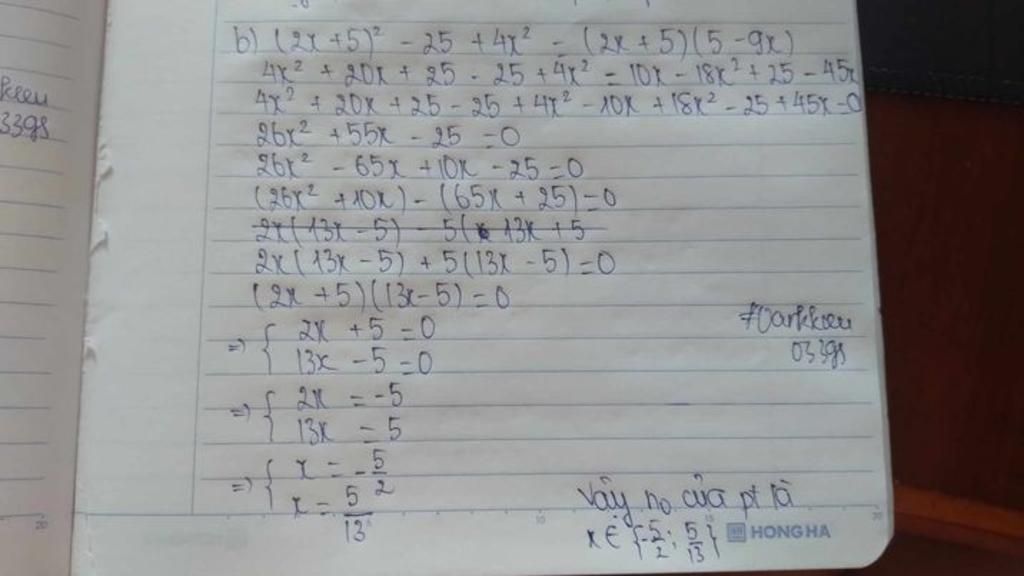 kieu
0339s
b) (2x + 5)² - 25 + 4x² = (2x + 5)(5 - 9x)
4x² + 20x + 25 - 25 + 4x² = 10x - 18x² + 25 - 45x
4x² + 20x + 25 - 25 + 4x² - 10x + 18x² - 25 + 45x = 0
26x² + 55x - 25 = 0
26x² - 65x + 10x - 25 = 0
(26x² + 10x) - (65x + 25) = 0
2x(13x - 5) - 5(x 13x + 5
2x(13x - 5) + 5(13x - 5) = 0
(2x + 5)(13x - 5) = 0
=> { 2x + 5 = 0
13x - 5 = 0
#Darkkieu
0339s
=> { 2x = -5
13x = 5
=> { x = -5/2
x = 5/13
Vậy no của pt là
x ∈ {-5/2; 5/13}
20
10
15
20
HONG HA